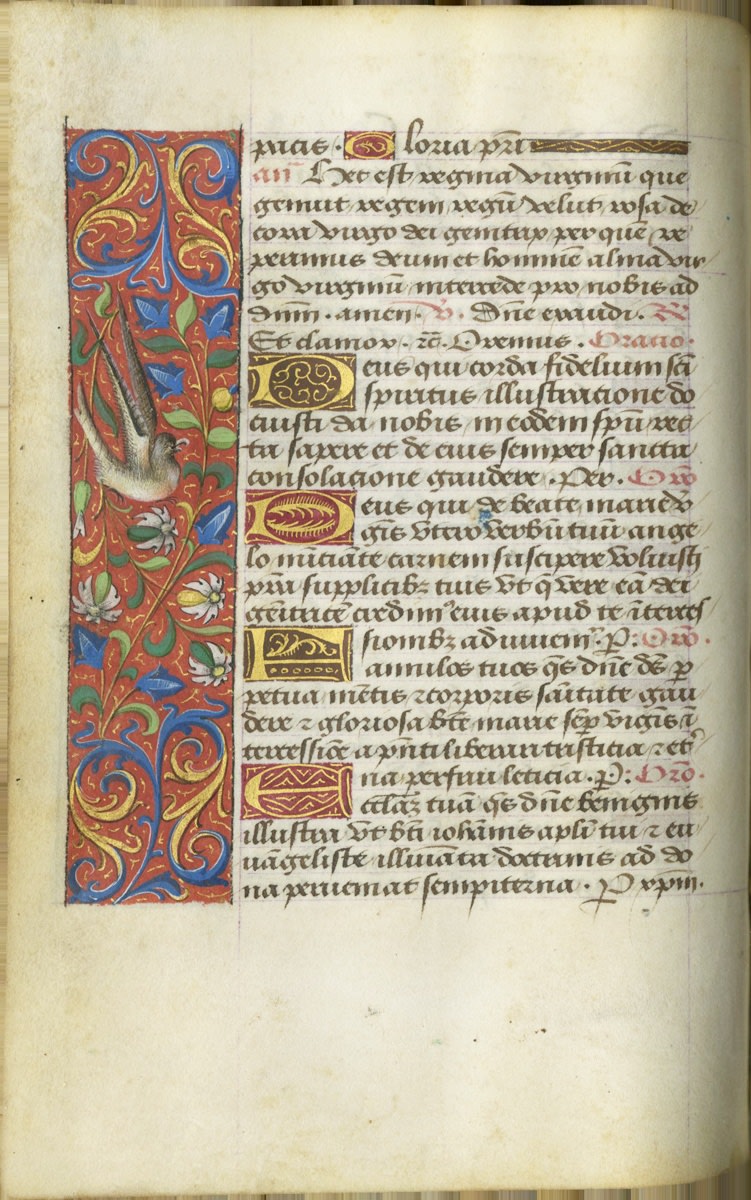 pacis · Gloria pr̄i
an̄ Hec est regina virginū que
genuit regem regū velut rosa de
cora virgo dei genitrix per quē re
perimus deum et hominē alma vir
go virginū intercede pro nobis ad
dnm̄ · amen · V̄. Dn̄e exaudi · R̄
Et clamor · rc̄ · Oremus · Oracio ·
Deus qui corda fidelium scī
spiritus illustracione do
cuisti da nobis in eodem spū rec
ta sapere et de eius semper sancta
consolacione gaudere · Per · Oro
Deus qui de beate marie v̄
ginis vtero verbū tuū ange
lo nūciāte carnem suscipere voluisti
pr̄a supplicibꝫ tuis vt q̄ vere eā dei
genitricē credim9 eius apud te īterces
sionibꝫ adiuuem̄ · P: Oro ·
Famulos tuos qs̄ dn̄e ds̄ ꝑ
petua mētis ⁊ corporis sanitate gau
dere ⁊ gloriosa bt̄e marie sēp v̄ginis ī
tercessiōe a pn̄ti liberari tristicia ⁊ et9
na perfrui leticia · P: Orō ·
Ecclāz tuā qs̄ dn̄e benignus
illustra vt bt̄i iohānis apl̄i tui ⁊ eu
uāgeliste illuīata doctrinis ad do
na perueniat sempiterna · P xpm̄ ·